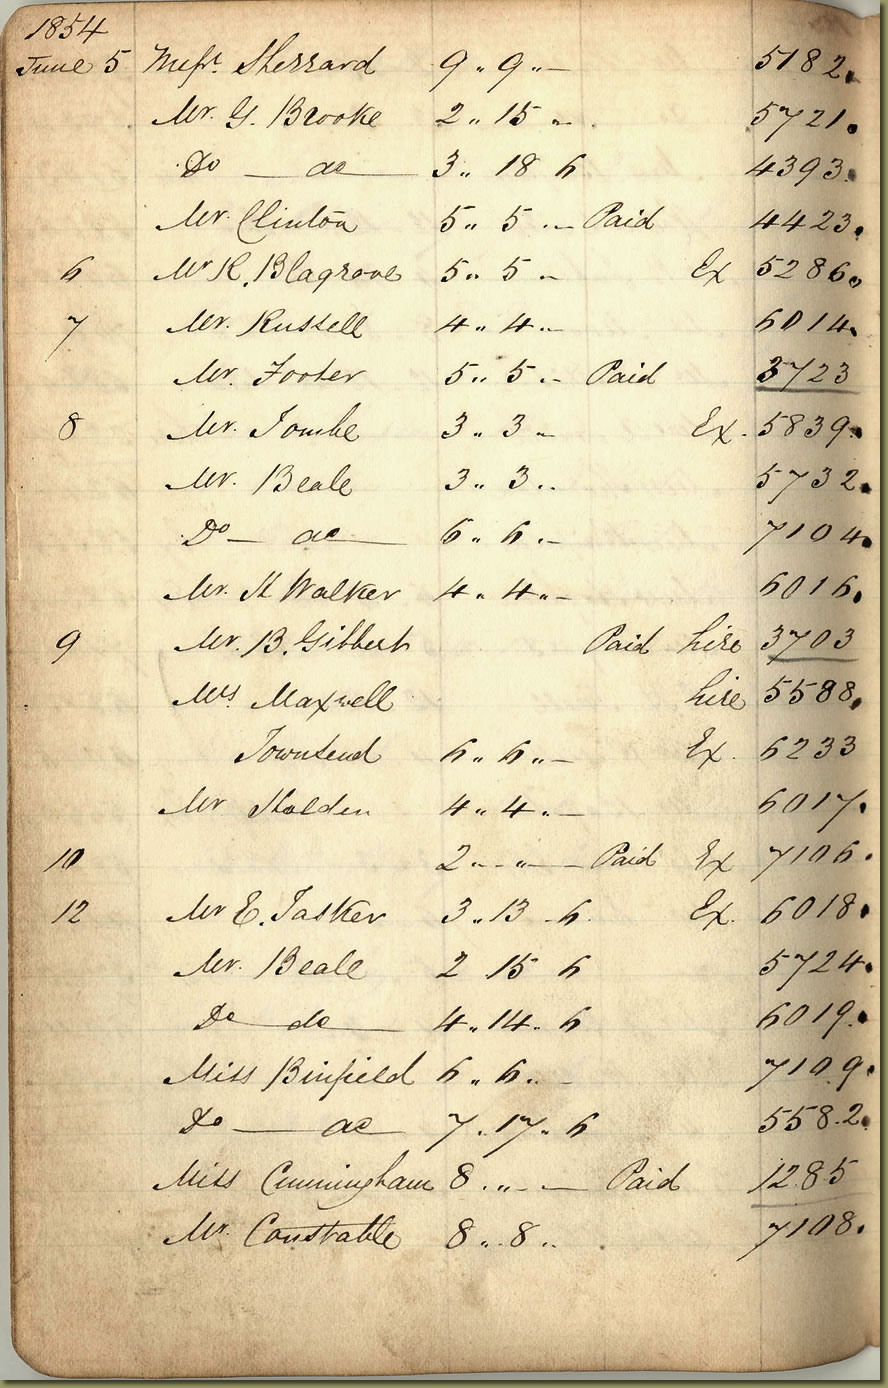 1854
June 5 Messrs. Sherrard 9 " 9 " — 5182.
Mr. G. Brooke 2 " 15 " - 5721.
Do — do — 3 " 18 6 4393.
Mr. Clinton 5 " 5 " - Paid 4423.
6 Mr R. Blagrove 5 " 5 " - Ex 5286.
7 Mr. Russell 4 " 4 " — 6014.
Mr. Footer 5 " 5 " - Paid 3723
8 Mr. Tombe 3 " 3 " - Ex. 5839.
Mr. Beale 3 " 3 " 5732.
Do — do — 6 " 6 " - 7104.
Mr. H Walker 4 " 4 " — 6016.
9 Mr. B. Gibbert Paid hire 3703
Mrs Maxwell hire 5588.
Townsend 6 " 6 " — Ex. 6233
Mr Holden 4 " 4 " — 6017.
10 2 " - " — Paid Ex 7106.
12 Mr E. Tasker 3 " 13 - 6. Ex. 6018.
Mr. Beale 2 15 6 5724.
Do — do — 4 " 14 " 6 6019.
Miss Binfield 6 " 6 " - 7109.
Do — do — 7 " 17 " 6 5582.
Miss Cunningham 8 " " — Paid 1285
Mr. Constable 8 " 8 " 7108.